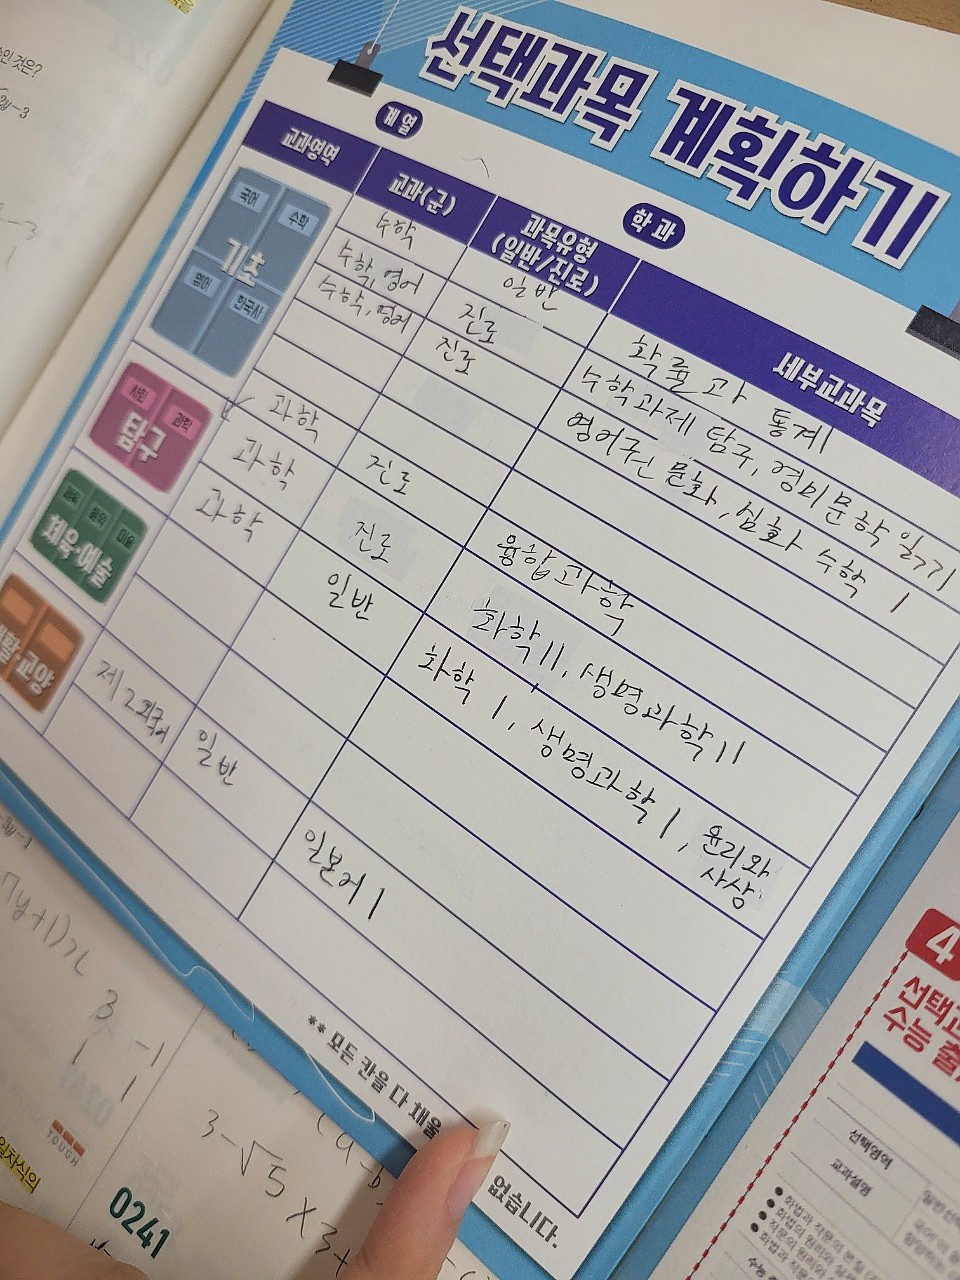 선택과목 계획하기
계열
학과
교과영역
교과(군)
과목유형
(일반/진로)
세부교과목
국어
수학
기초
영어
한국사
수학
일반
확률과 통계
수학, 영어
진로
수학과제 탐구, 영미문학 읽기
수학, 영어
진로
영어권 문화, 심화 수학 1
사회
과학
탐구
과학
진로
융합과학
과학
진로
화학 11, 생명과학 11
과학
일반
화학 1, 생명과학 1, 윤리와
사상
체육·예술
교양
제2외국어
일반
일본어 1
** 모든 칸을 다 채울
없습니다.
인 것은?
2y-3
7y+1)x
3
-1
1
1
3-√5
×3+
일차식의
TOUGH
0241
4
선택과
수능 출
선택영역
교과설명
수능